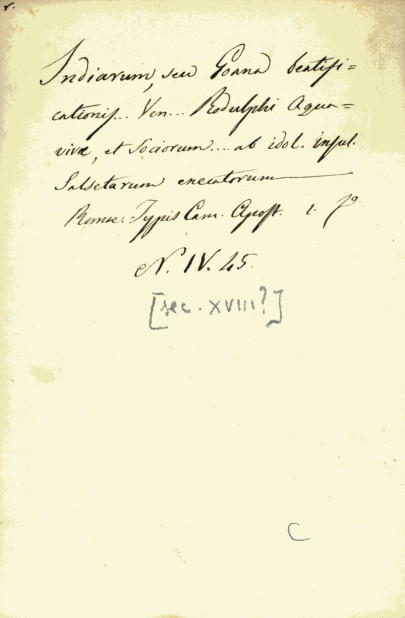 Indiarum, seu Goana beatifi=
cationis... Ven... Rodulphi Aqua=
vivæ, et Sociorum.... ab idol. insul.
Salsetarum enecatorum
Romæ. Typis Cam. Apost. 1. fo
N. IV. 45.
[sec. XVIII?]
C